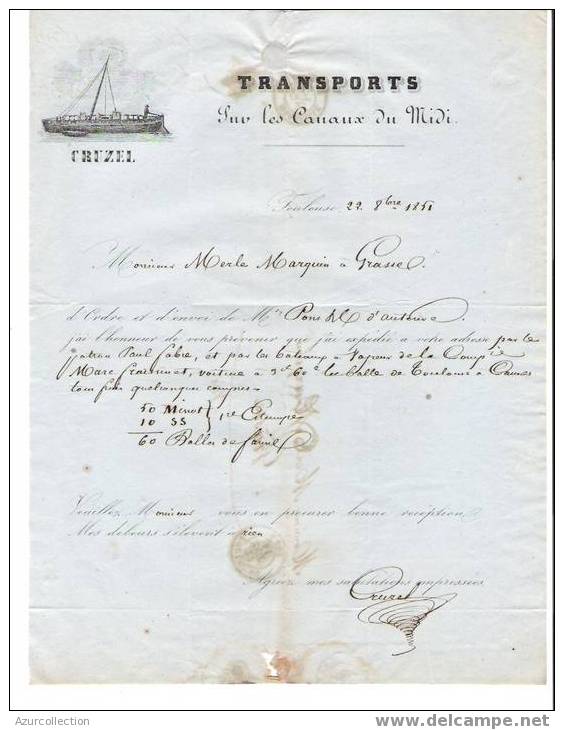 TRANSPORTS
Sur les Canaux du Midi.
CRUZEL
Toulouse 22 8bre 1851
Monsieur Merle Marquin à Grasse
d'Ordre et d'envoi de Mrs Pons d'auterive
j'ai l'honneur de vous prévenir que j'ai expédié a votre adresse par le
patron Paul fabre, et par les bateaux a vapeur de la Comp.ie
Marc fraissinet, voiture a 3f 60c la balle de Toulouse a Cannes
tous frais quelconques compris
50 Minot
10 SS
1re Etampe
60 Balles de farine
Veuillez Monsieur vous en procurer bonne reception
Mes debours s'élevent a rien
Agréez mes salutations empressées
Cruzel
Azurcollection
www.delcampe.net